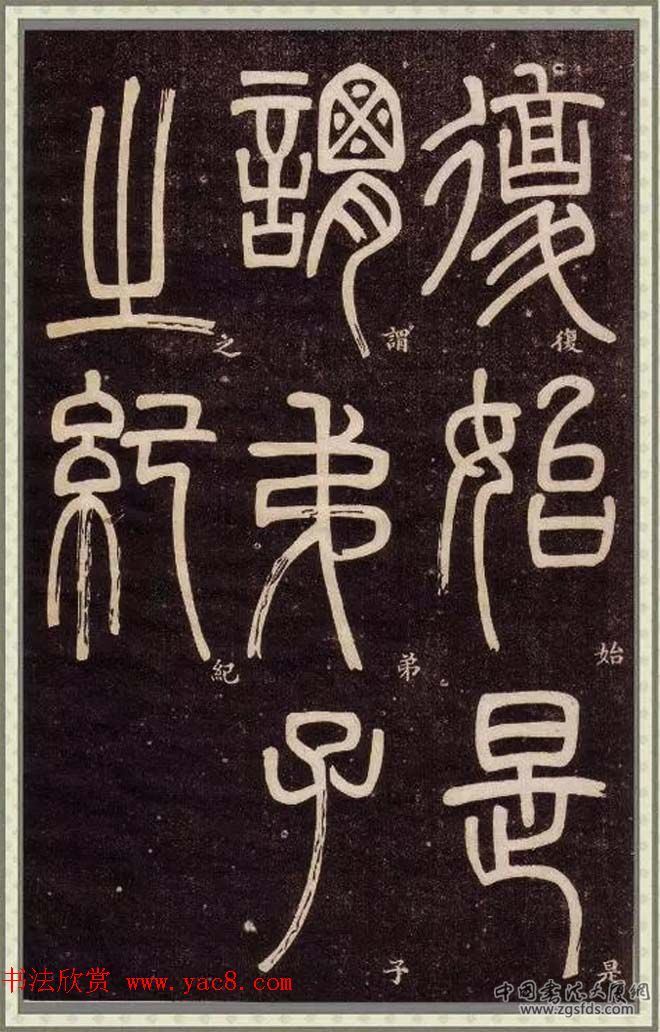 復始是
謂弟子
之紀
復
始
是
謂
弟
子
之
紀
书法欣赏 www.yac8.com
中国书法大展網
www.zgsfds.com